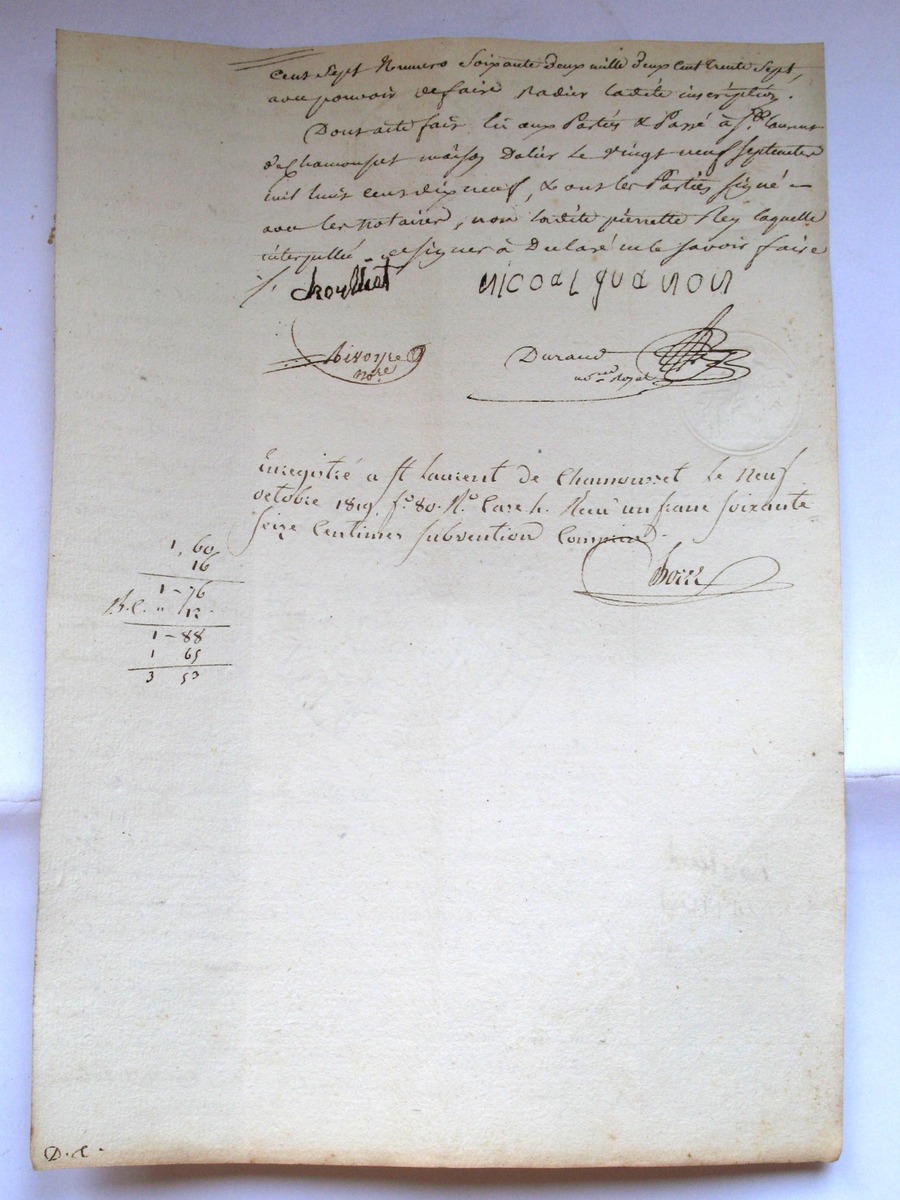 Cent Sept Numero Soixante deux mille deux Cent trente Sept,
avec pouvoir de faire Radier ladite inscription.
Dont acte fait lû aux Parties & Passé à St. Laurent
de Chamousset maison Dalier le vingt neuf Septembre
mil huit cent dix neuf, & ont les Parties signé
avec les notaires, non ladite pierrette Rey laquelle
interpellée de signer à Declaré ne le savoir faire
nicoal guanon
nore
Durand
nore Royal
Enregistré a St Laurent de Chamousset le Neuf
octobre 1819 fo. 80. Ro. Case h. Reçu un franc soixante
seize Centimes subvention Comprise.
1, 60
16
1 - 76
R.C. " 12
1 - 88
1 65
3 53
D. C.